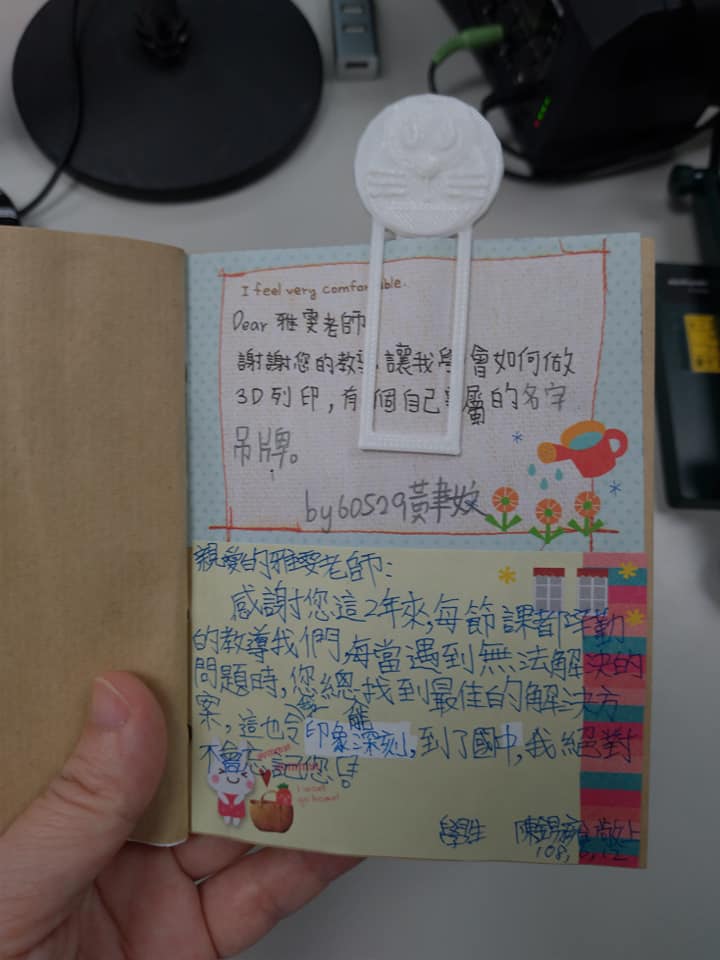 I feel very comfortable.
Dear 雅雯老師
謝謝您的教 讓我學會如何做
3D列印,有 個自己專屬的名字
吊牌。
by60529黃聿妏
親愛的雅雯老師:
感謝您這2年來,每節課都辛勤
的教導我們,每當遇到無法解決的
問題時,您總能找到最佳的解決方
案,這也令我印象深刻,到了國中,我絕對
不會忘記您!
I must go home!
學生 陳錫 敬上
108,6,12